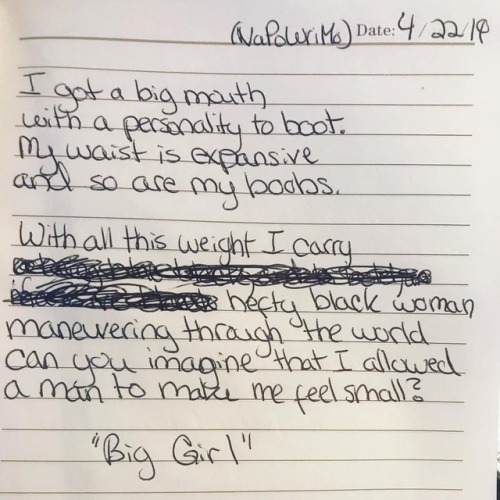 (NaPoWriMo) Date: 4/22/19
I got a big mouth
with a personality to boot.
My waist is expansive
and so are my boobs.
With all this weight I carry
hefty black woman
maneuvering through the world
can you imagine that I allowed
a man to make me feel small?
"Big Girl"